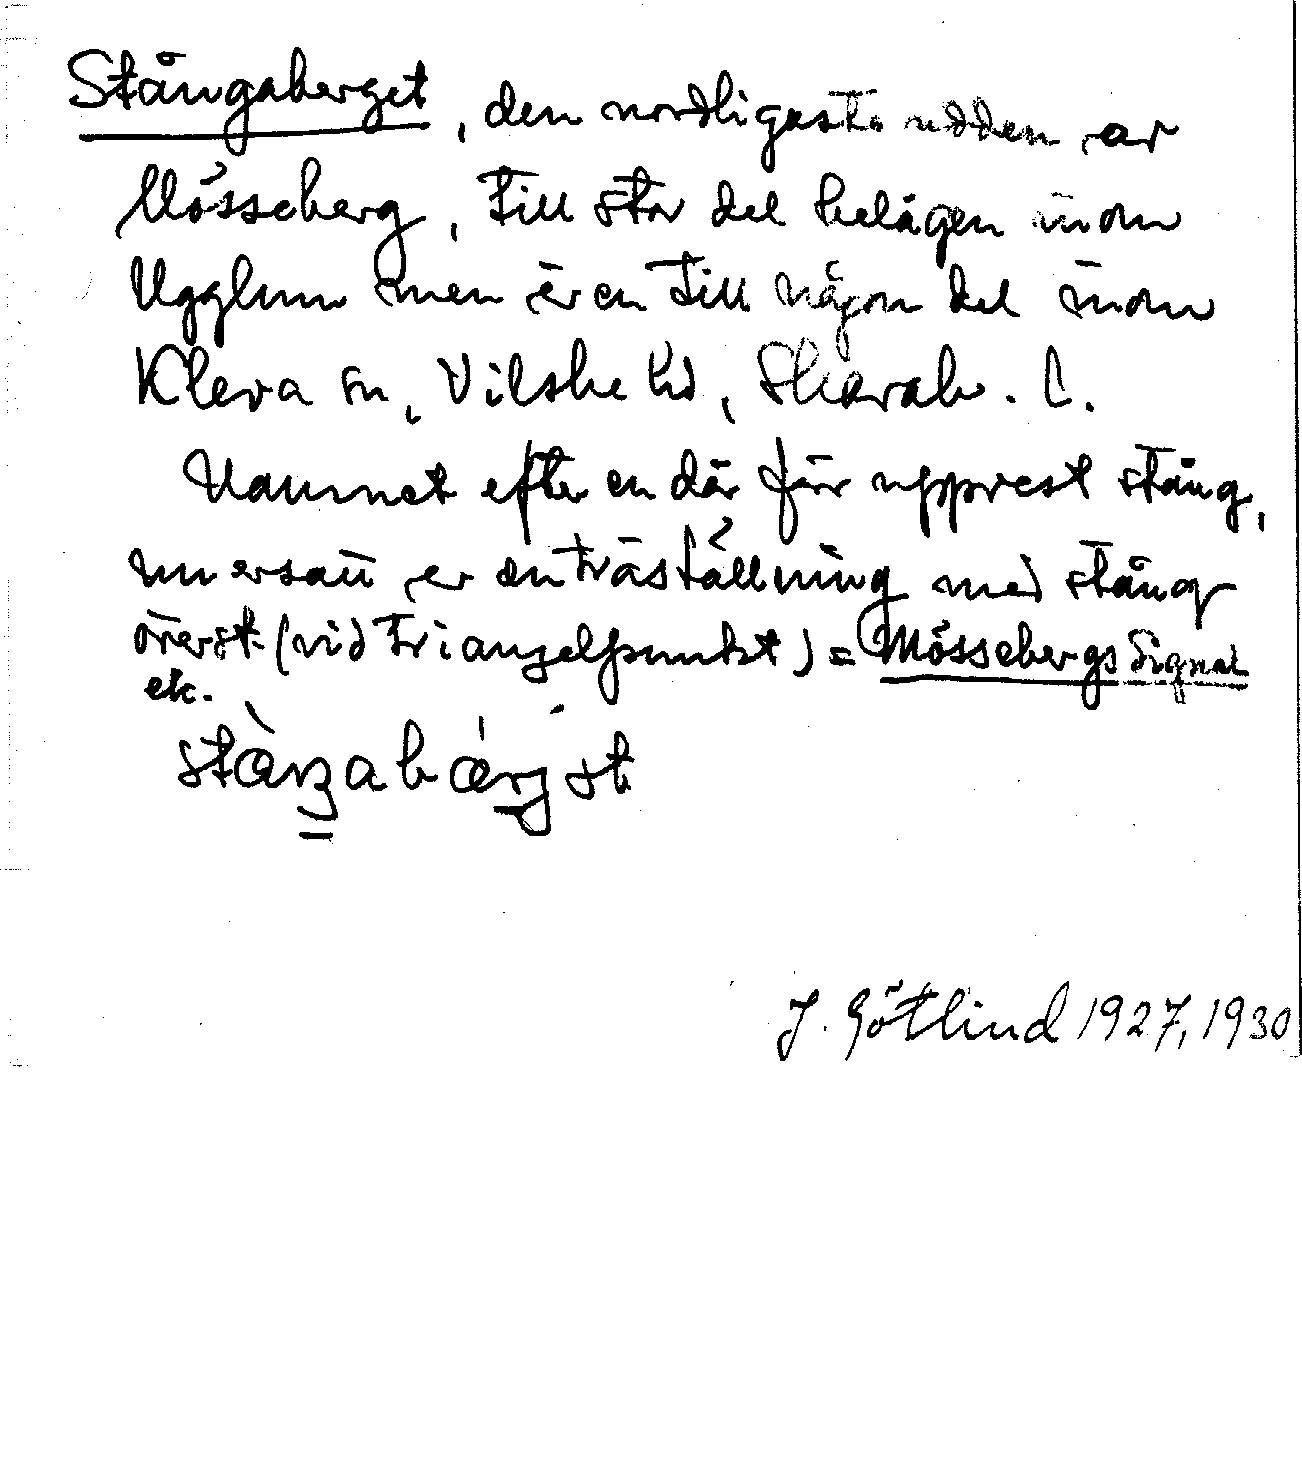 Stångaberget, den nordligaste udden av
Mösseberg, till stor del belägen inom
Ugglum men även till någon del inom
Kleva sn, Vilske hd, Skarab. l.
Namnet efter en där förr upprest stång,
nu ersatt av en träställning med stång
överst (vid triangelpunkt) = Mössebergs signal
etc.
J. Götlind 1927, 1930